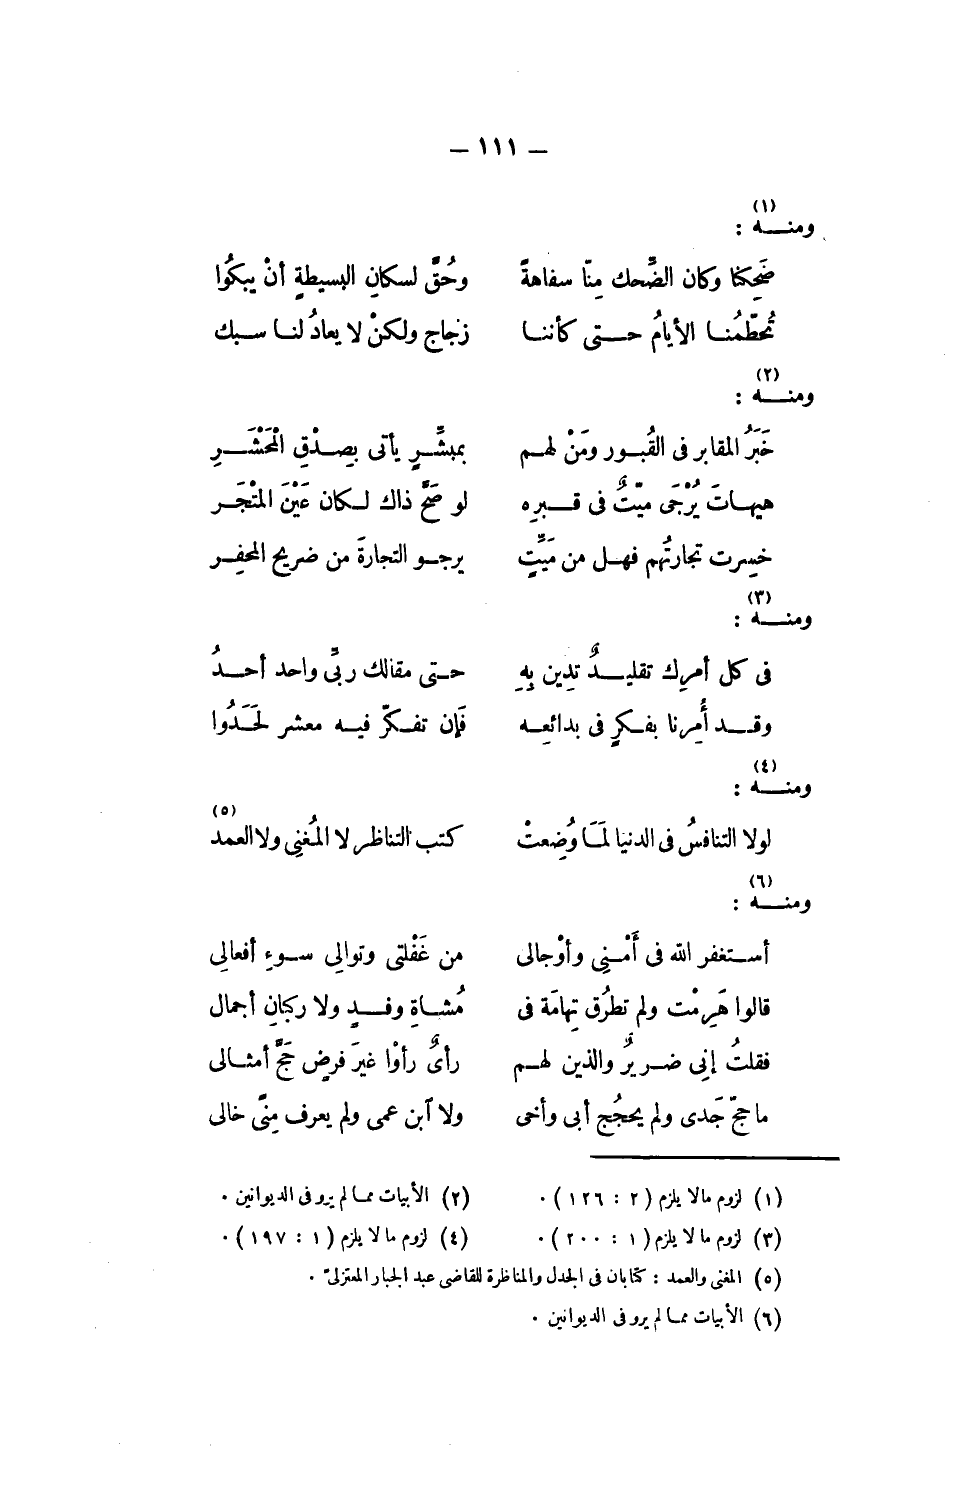 — ١١١ —
ومنـــه (١) :
ضَحِكنا وكان الضَّحك مِنّا سفاهةً وحُقَّ لسكانِ البسيطةِ أنْ يبكُوا
تُحطّمُنــا الأيامُ حـــتى كأننــا زجاج ولكنْ لا يعادُ لنــا سبك
ومنـــه (٢) :
خَبَرُ المقابر فى القُبــور ومَنْ لهــم بمبشِّــرٍ يأتى بِصِــدْقِ الْمَحْشَــرِ
هيهــاتَ يُرْجَى ميّتٌ فى قـــبرِه لو صَحَّ ذاك لــكان عَيْنَ المَتْجَــر
خسِرت تجارتُهم فهــل من مَيِّتٍ يرجــو التجارةَ من ضريح المحفِــر
ومنـــه (٣) :
فى كل أمرِك تقليـــدٌ تدِين بِهِ حــتى مقالك ربِّى واحد أحــدُ
وقـــد أُمِرنا بفــكرٍ فى بدائعِــه فَإن تفــكّر فيــه معشر لَحَدُوا
ومنـــه (٤) :
لولا التنافسُ فى الدنيا لَمَــا وُضِعتْ كتب التناظر لا المُغنِى ولا العمد (٥)
ومنـــه (٦) :
أســتغفر الله فى أَمْــنِى وأوْجالى من غَفْلتى وتوالِى ســوءِ أفعالِى
قالوا هَرِمْت ولم تطرُق تِهامَة فى مُشــاةِ وفـــدٍ ولا ركبانِ أجمال
فقلتُ إنِى ضــريرٌ والذين لهــم رأىٌ رأوْا غيرَ فرضٍ حَجَّ أمثــالى
ما حجّ جَدى ولم يحجُج أبى وأخى ولا آبن عمى ولم يعرف مِنًى خالى
(١) لزوم مالا يلزم (٢ : ١٢٦) . (٢) الأبيات ممــا لم يرو فى الديوانين .
(٣) لزوم ما لا يلزم (١ : ٢٠٠) . (٤) لزوم ما لا يلزم (١ : ١٩٧) .
(٥) المغنى والعمد : كتابان فى الجدل والمناظرة للقاضى عبد الجبار المعتزلىّ .
(٦) الأبيات ممــا لم يرو فى الديوانين .